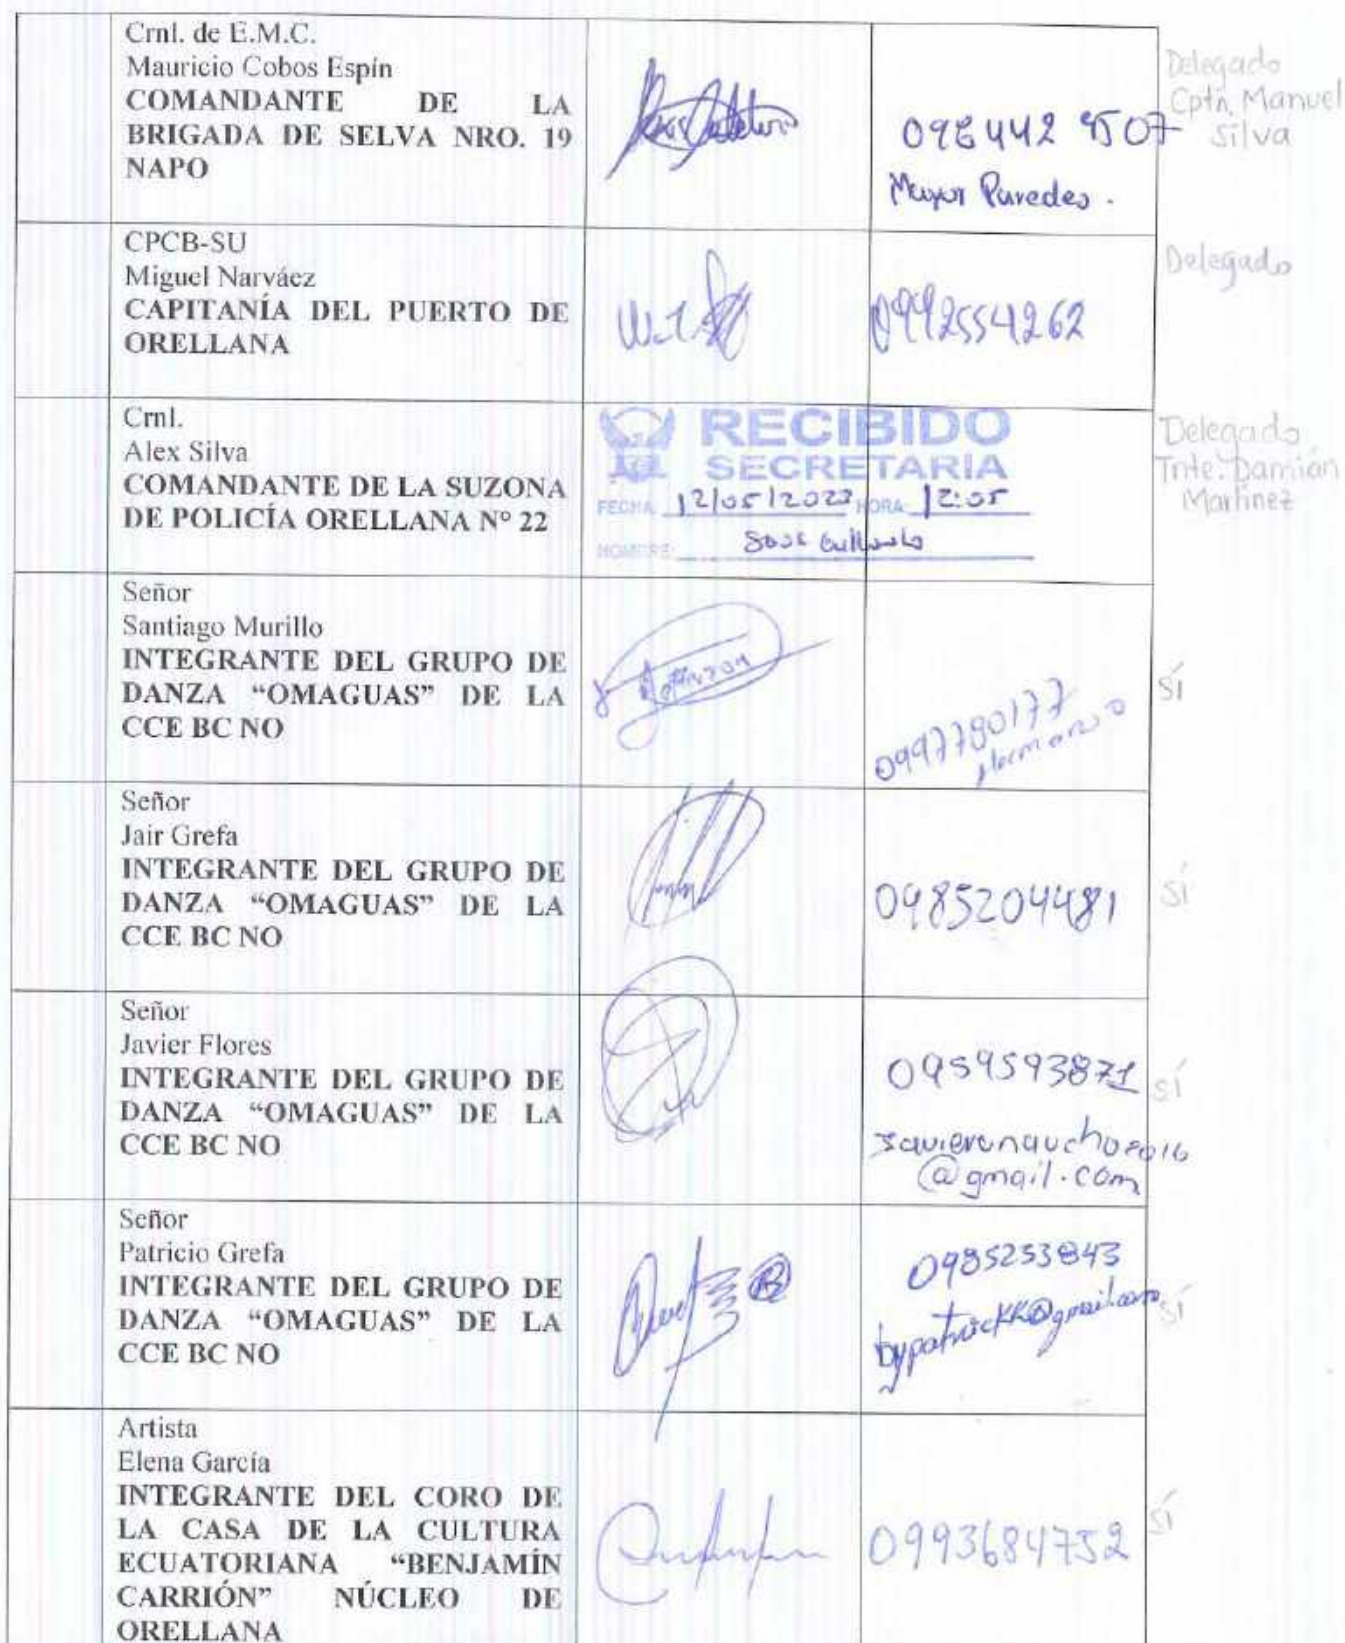 Crnl. de E.M.C.
Mauricio Cobos Espín
COMANDANTE DE LA
BRIGADA DE SELVA NRO. 19
NAPO
0964429507
Mayor Paredes.
Delegado
Cptn. Manuel
Silva
CPCB-SU
Miguel Narváez
CAPITANÍA DEL PUERTO DE
ORELLANA
0992554262
Delegado
Crnl.
Alex Silva
COMANDANTE DE LA SUZONA
DE POLICÍA ORELLANA N° 22
RECIBIDO
SECRETARIA
FECHA: 12/05/2022 HORA: 12:05
NOMBRE:
Delegado
Tnte. Damián
Martínez
Señor
Santiago Murillo
INTEGRANTE DEL GRUPO DE
DANZA “OMAGUAS” DE LA
CCE BC NO
0997790177
Hermano
SÍ
Señor
Jair Grefa
INTEGRANTE DEL GRUPO DE
DANZA “OMAGUAS” DE LA
CCE BC NO
0985204481
SÍ
Señor
Javier Flores
INTEGRANTE DEL GRUPO DE
DANZA “OMAGUAS” DE LA
CCE BC NO
0959593871
@gmail.com
SÍ
Señor
Patricio Grefa
INTEGRANTE DEL GRUPO DE
DANZA “OMAGUAS” DE LA
CCE BC NO
0985253843
bypatrickk@gmail.com
SÍ
Artista
Elena García
INTEGRANTE DEL CORO DE
LA CASA DE LA CULTURA
ECUATORIANA “BENJAMÍN
CARRIÓN” NÚCLEO DE
ORELLANA
0993684752
SÍ